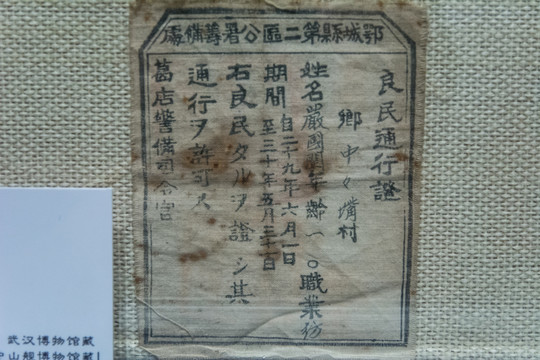 鄂城縣第二區公署籌備處
良民通行證
鄉中々嘴村
姓名嚴國 年齡一〇職業
期間自二十九年六月一日
至三十年五月三十一日
右良民タルヲ證シ其
通行ヲ許可ス
葛店警備司令官
武汉博物馆藏
中山舰博物馆